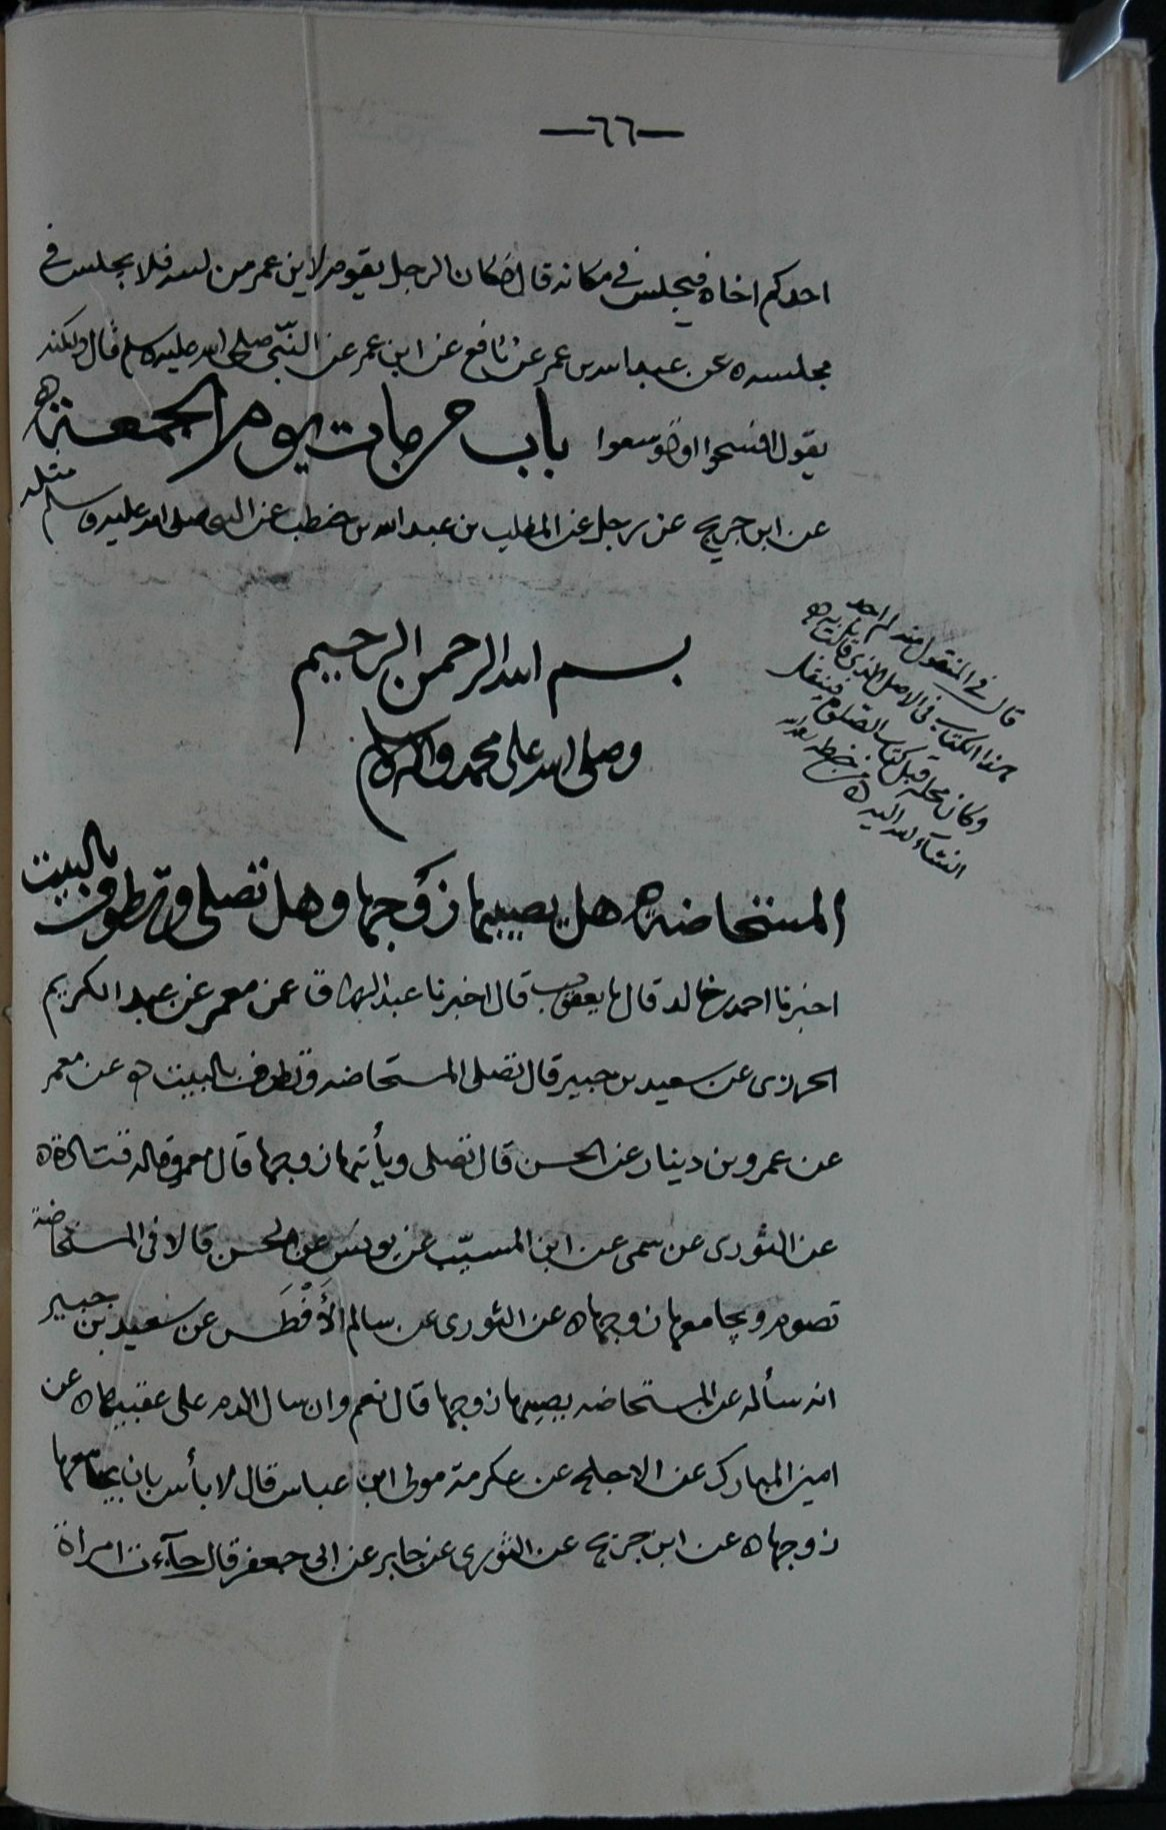 —٦٦—
احدكم اخاه فيجلس في مكانه قال فكان الرجل يقوم لابن عمر من نفسه فلا يجلس في
مجلسه ه عن عبدالله بن عمر عن نافع عن ابن عمر عن النبي صلى الله عليه وسلم قال ولكنه
يقول افسحوا او توسعوا باب حرمات يوم الجمعة ه
عن ابن جريج عن رجل عن المطلب بن عبدالله بن حنطب عن النبي صلى الله عليه وسلم مثله
بسم الله الرحمن الرحيم
وصلى الله على محمد واله وسلم
قال في المنقول منه لم اجد
هذا الكتاب في الاصل الذي
وكان محله قبل كتاب الصلوة فينقل
انشاء الله اليه ه من خطه
المستحاضة ه هل يصيبها زوجها وهل تصلي وتطوف بالبيت
اخبرنا احمد بن خالد قال نا يعقوب قال اخبرنا عبد الرزاق عن معمر عن عبد الكريم
الجزري عن سعيد بن جبير قال تصلى المستحاضه وتطوف بالبيت ه عن معمر
عن عمرو بن دينار عن الحسن قال تصلى ويأتيها زوجها قال معمر وقاله قتادة ه
عن الثورى عن سمى عن ابن المسيّب عن يونس عن الحسن قالا فى المستحاضة
تصوم ويجامعها زوجها ه عن الثورى عن سالم الأَفْطَس عن سعيد بن جبير
انه سأله عن المستحاضه يصيبها زوجها قال نعم وان سال الدم على عقبيها ه عن
ابن المبارك عن الاجلح عن عكرمة مولى ابن عباس قال لا بأس بان يجامعها
زوجها ه عن ابن جريج عن الثورى عن جابر عن ابى جعفر قال جآءت امراة